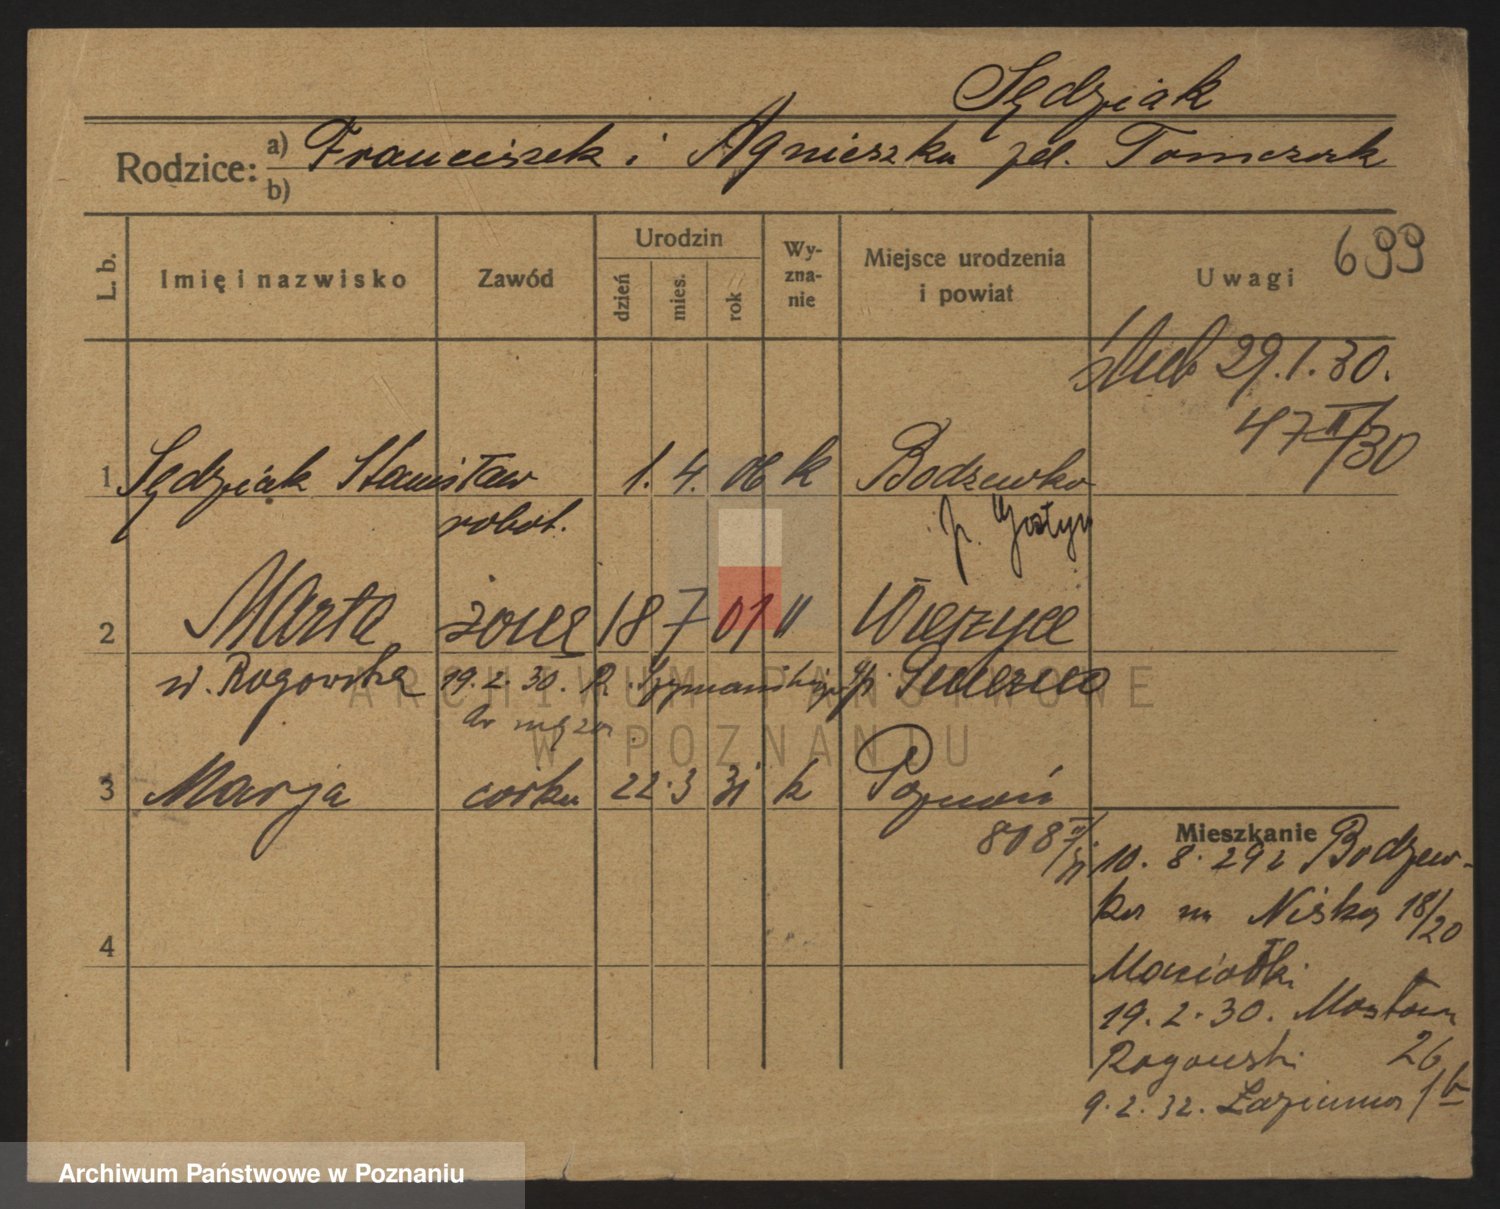 Sędziak
Rodzice: a) Franciszek i Agnieszka zd. Tomczak
b)
L. b. Imię i nazwisko Zawód Urodzin dzień mies. rok Wy-zna-nie Miejsce urodzenia i powiat Uwagi 699
ślub 29.1.30.
47 II/30
1 Sędziak Stanisław 1. 4. 06 k Bodzewko
robot. p. Gostyń
2 Marta żona 18 7 01 "
z d. Rogowska 19.2.30. R. p.
do męża
3 Marja córka 22. 3 31 k Poznań
808 II/31
Mieszkanie
10. 8. 29 z Bodzew-
ka na Niska 18/20
4
19. 2. 30. Mostowa
Rogowski 26
9. 2. 32. Łazienna 1b
ARCHIWUM PAŃSTWOWE
W POZNANIU
Archiwum Państwowe w Poznaniu